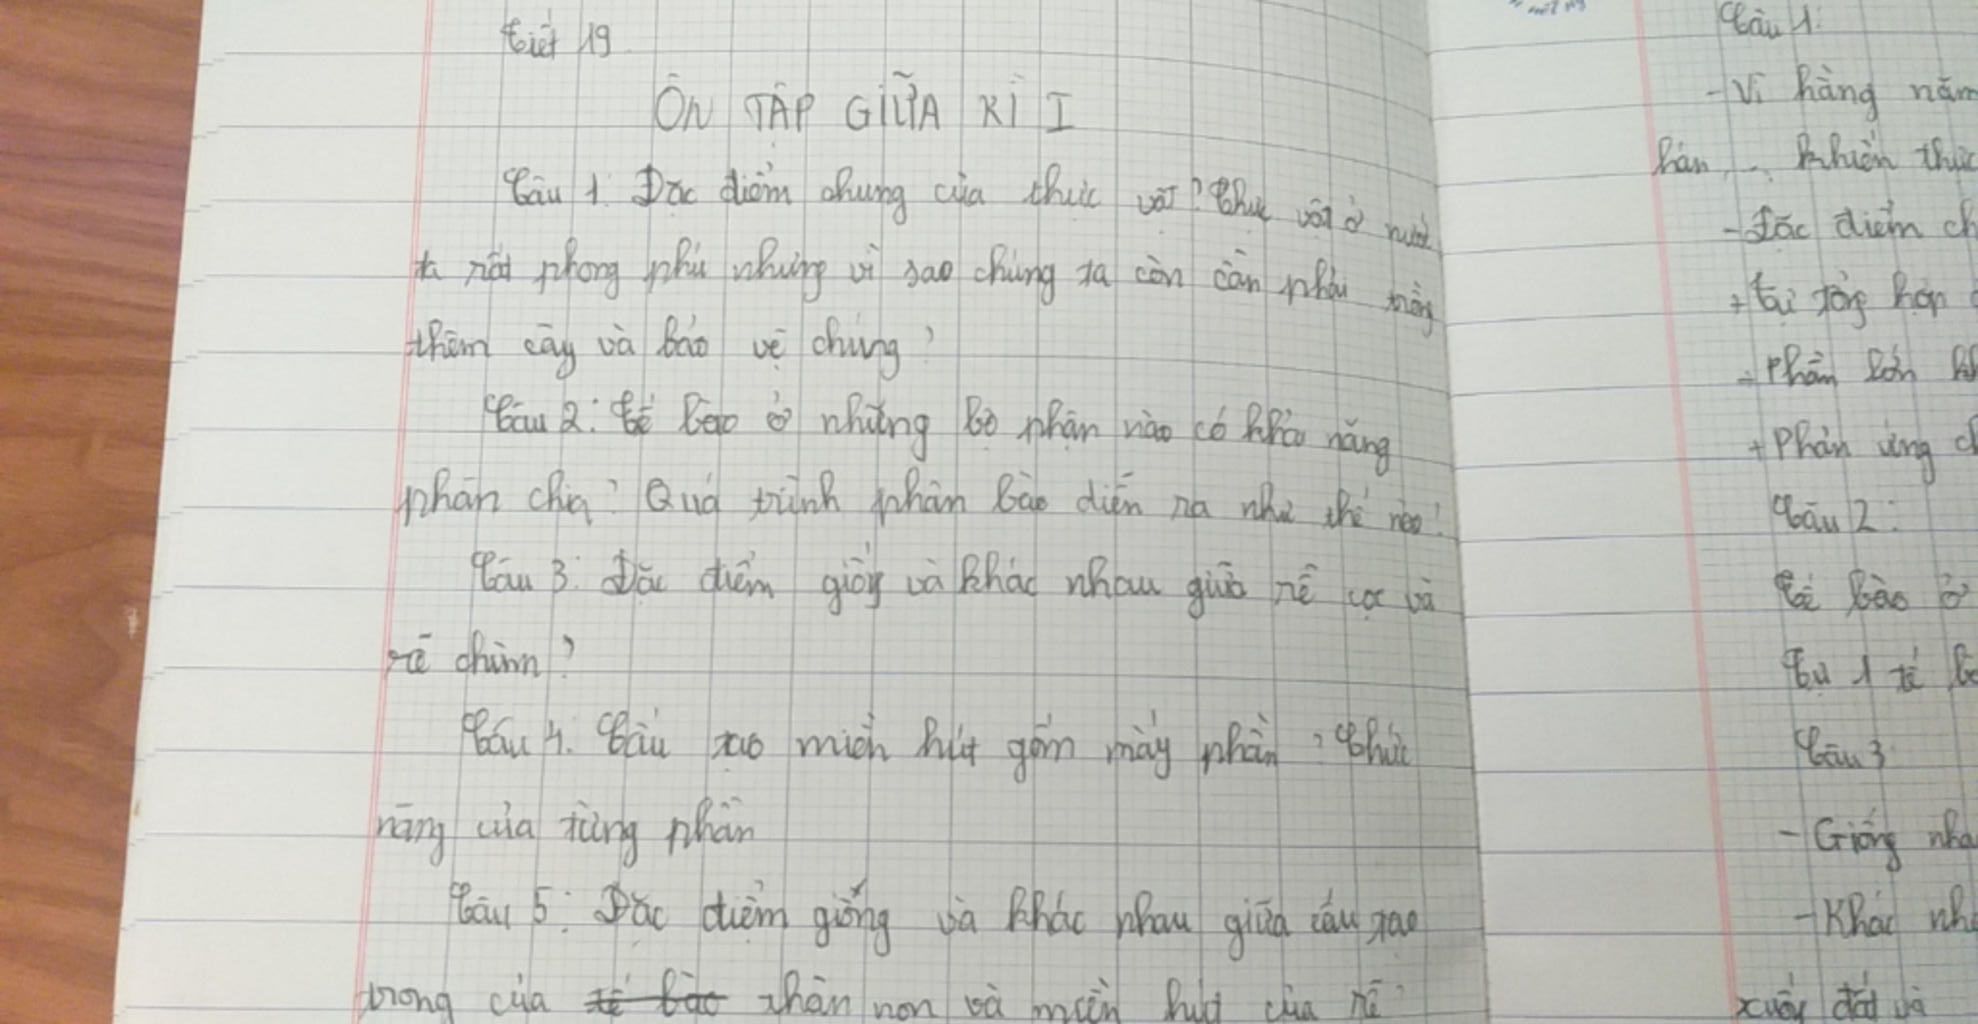 Tiết 19
ÔN TẬP GIỮA KÌ I
Câu 1: Đặc điểm chung của thực vật? Thực vật ở nước
ta rất phong phú nhưng vì sao chúng ta còn cần phải trồng
thêm cây và bảo vệ chúng?
Câu 2: Tế bào ở những bộ phận nào có khả năng
phân chia? Quá trình phân bào diễn ra như thế nào?
Câu 3: Đặc điểm giống và khác nhau giữa rễ cọc và
rễ chùm?
Câu 4: Cấu tạo miền hút gồm mấy phần? Chức
năng của từng phần
Câu 5: Đặc điểm giống và khác nhau giữa cấu tạo
trong của tế bào thân non và miền hút của rễ?
Câu 1:
- Vì hằng năm
hán... khiến thực
- Đặc điểm ch
+ Tự tổng hợp
+ Phần lớn kh
+ Phản ứng ch
Câu 2:
Tế bào ở
Từ 1 tế b
Câu 3
- Giống nha
- Khác nh
xuống đất và